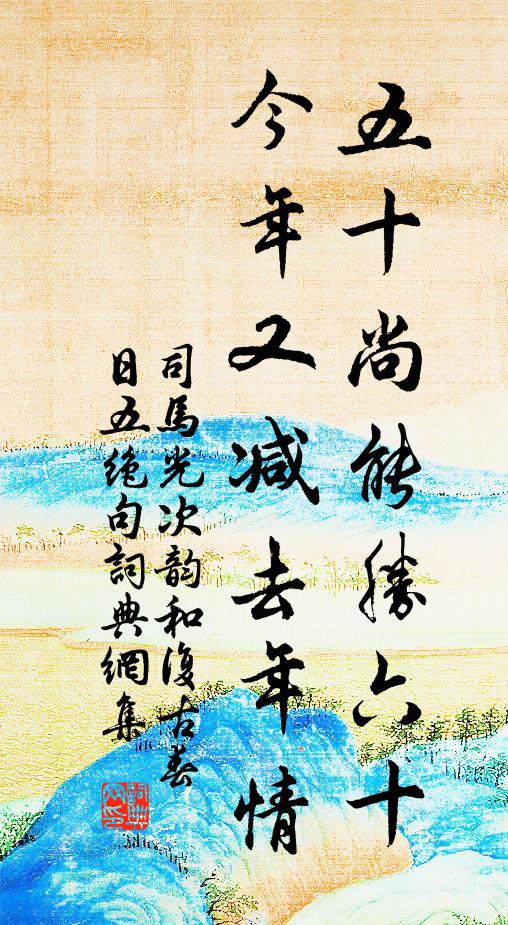 五十尚能勝六十
今年又減去年情
司馬光次韵和復古春
日五绝句詞典網集